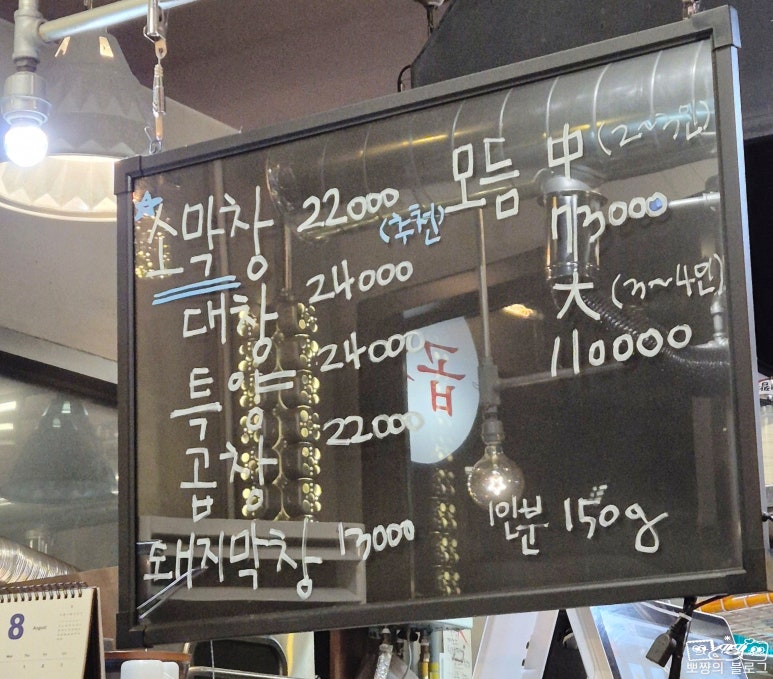 소막창 22000 (추천)
대창 24000
특양 24000
곱창 22000
돼지막창 13000
모듬 中 (2~3인)
73000
大 (3~4인)
110000
1인분 150g
8 August
뽀짱의 블로그